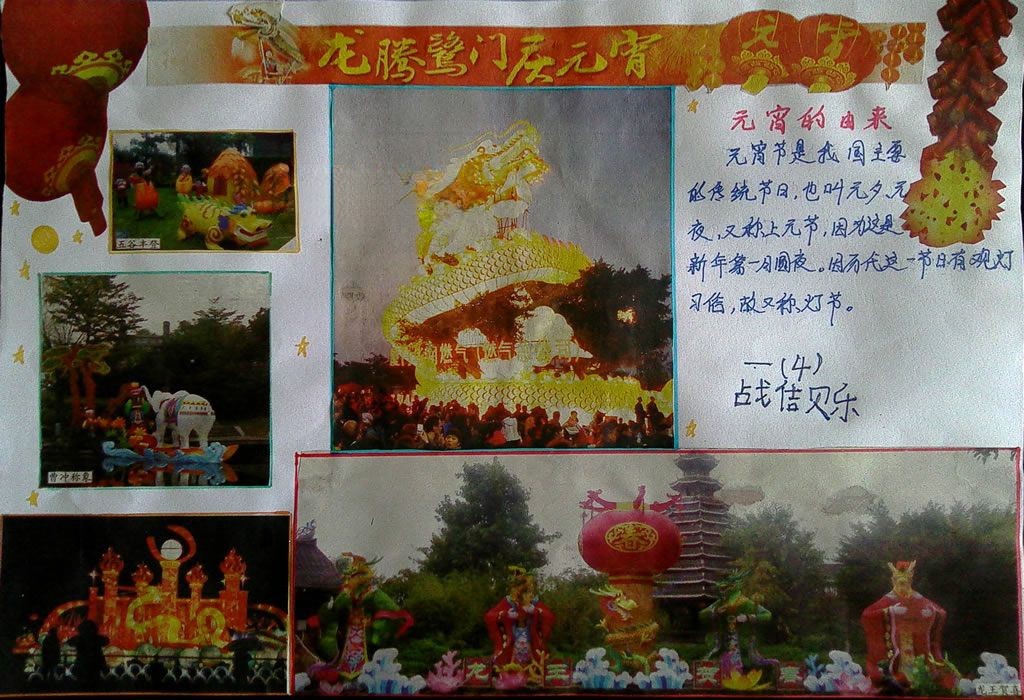 龙腾鹭门庆元宵
元宵
元宵的由来
元宵节是我国主要
的传统节日,也叫元夕、元
夜,又称上元节,因为这是
新年第一月圆夜。因历代这一节日有观灯
习俗,故又称灯节。
一(4)
战佳贝乐
五谷丰登
曹冲称象
燃气
龙王
龙王贺喜